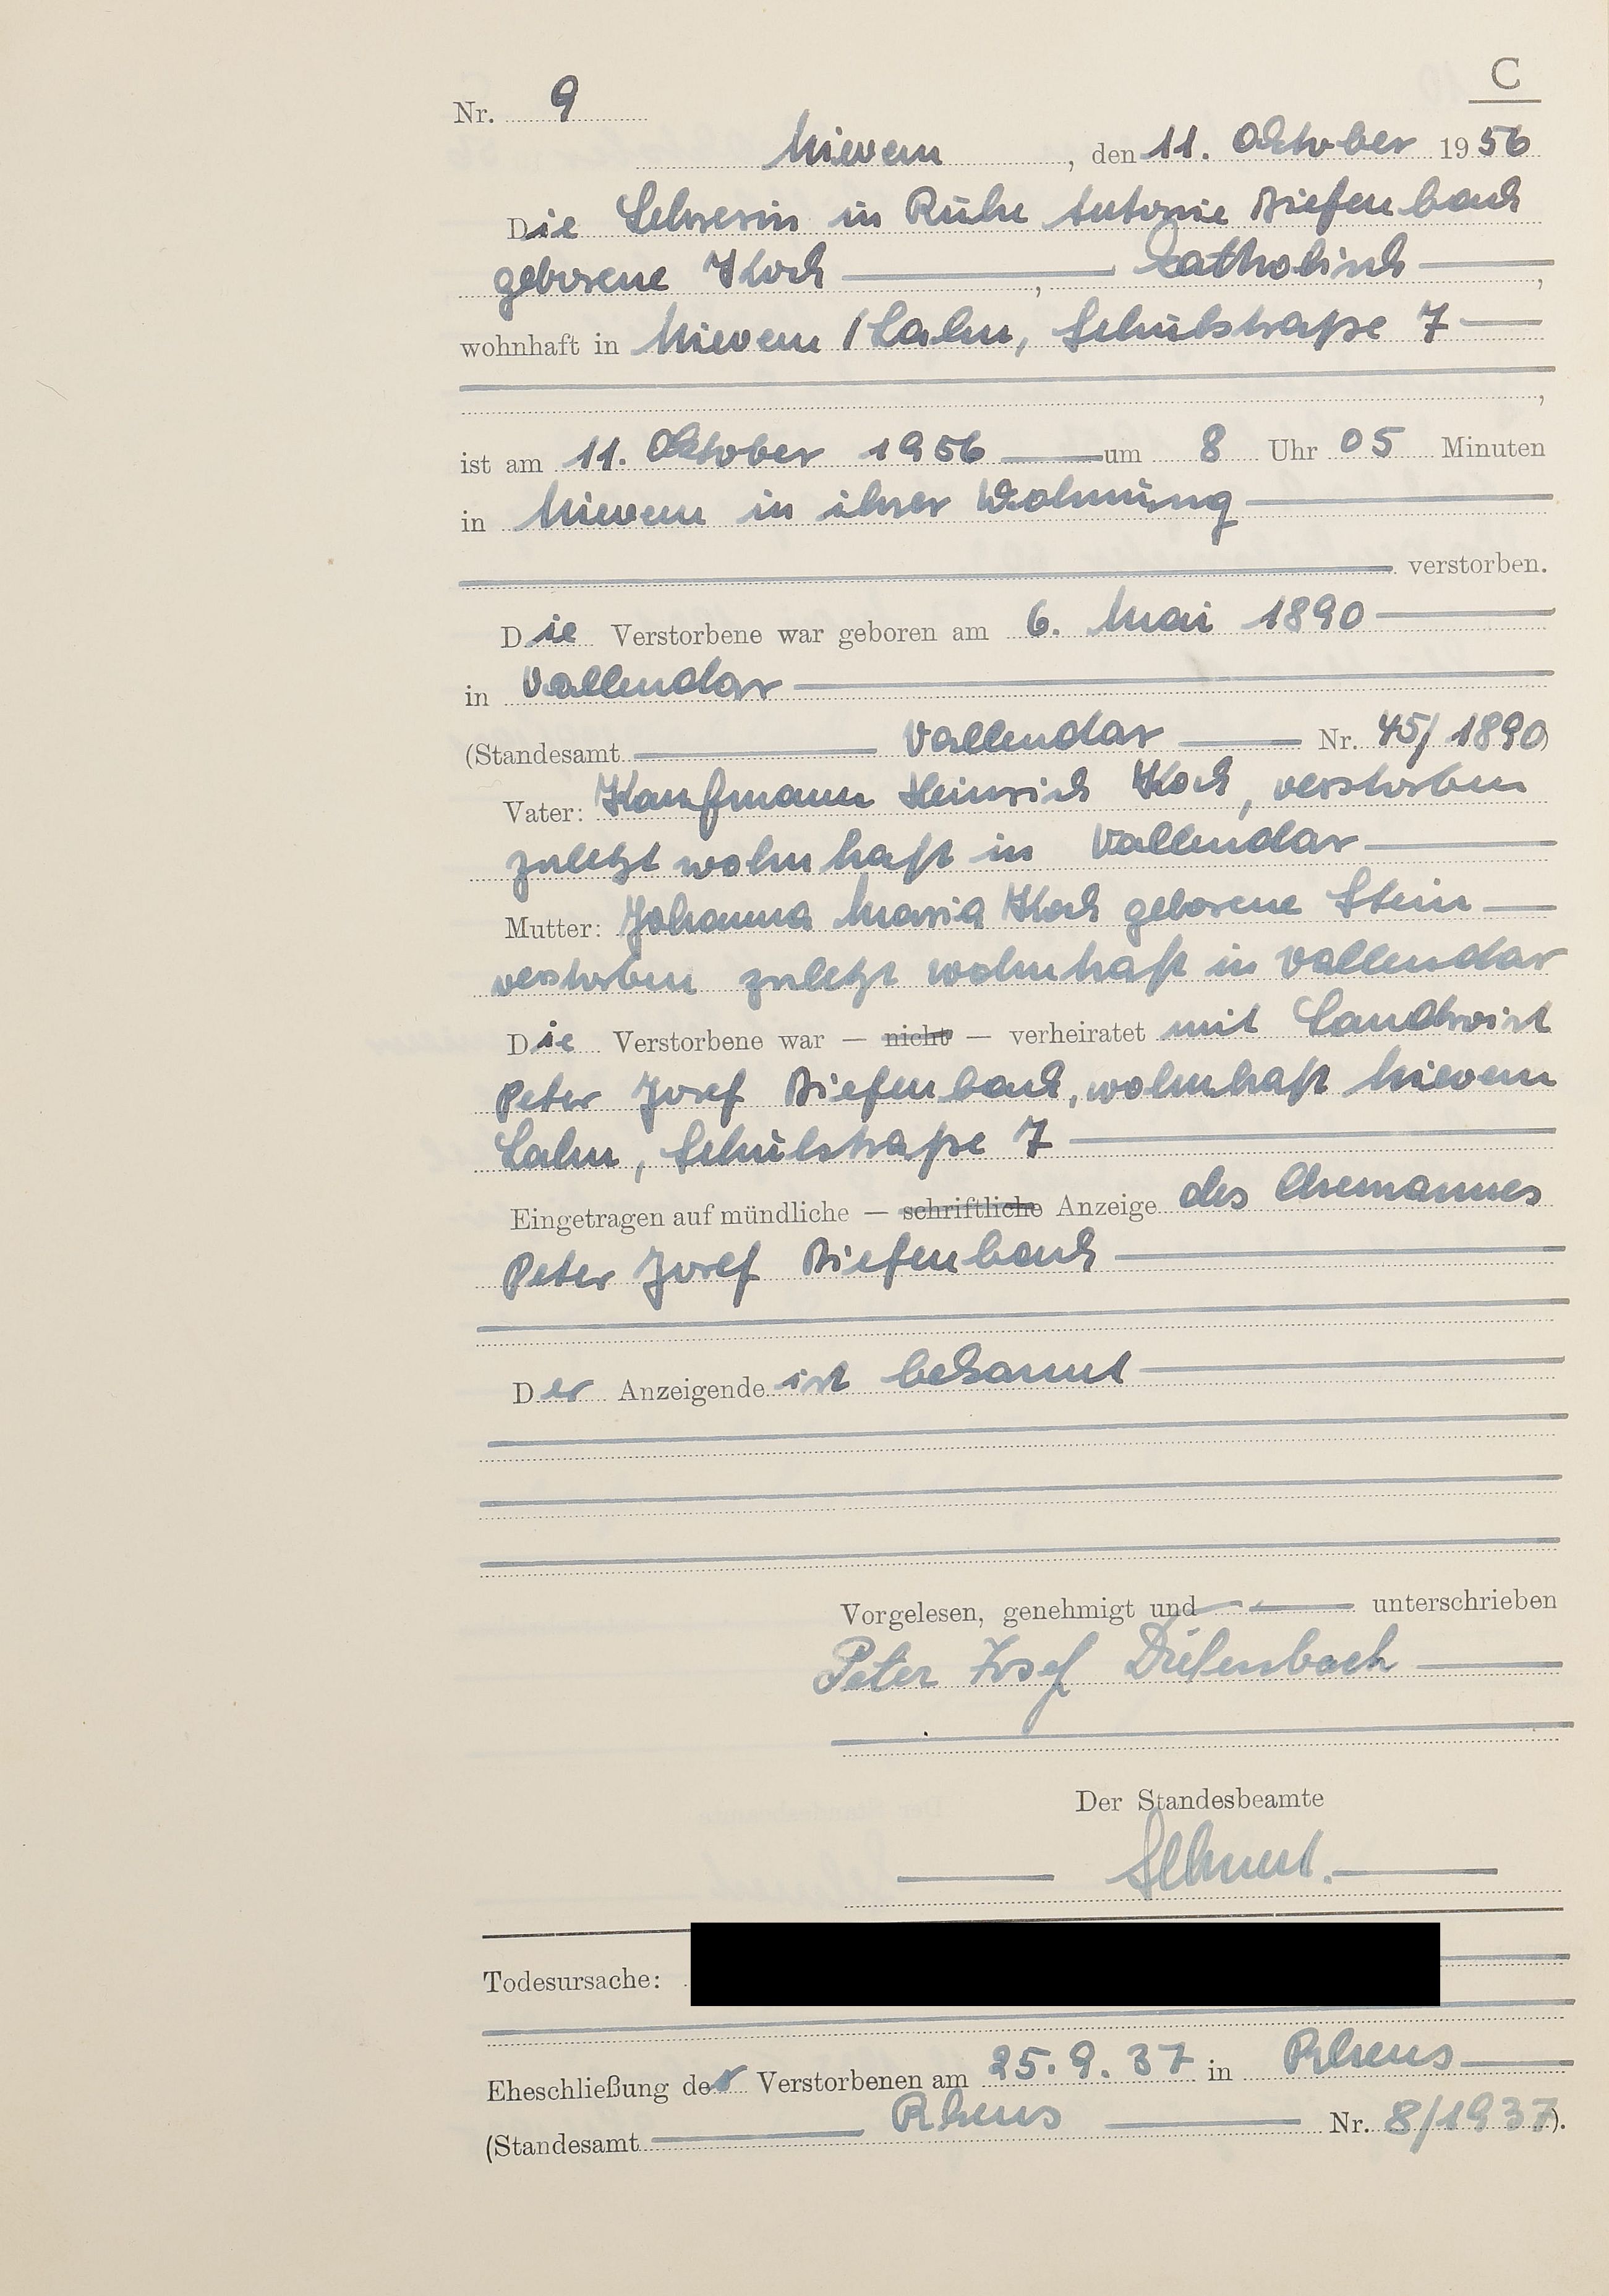 C
Nr. 9
Nievern, den 11. Oktober 1956
Die Lehrerin in Ruhe Antonie Diefenbach
geborene Koch, katholisch,
wohnhaft in Nievern / Lahn, Schulstraße 7
,
ist am 11. Oktober 1956 um 8 Uhr 05 Minuten
in Nievern in ihrer Wohnung
verstorben.
Die Verstorbene war geboren am 6. Mai 1890
in Vallendar
(Standesamt Vallendar Nr. 45/1890)
Vater: Kaufmann Heinrich Koch, verstorben
zuletzt wohnhaft in Vallendar
Mutter: Johanna Maria Koch geborene Stein
verstorben zuletzt wohnhaft in Vallendar
Die Verstorbene war — nicht — verheiratet mit Landwirt
Peter Josef Diefenbach, wohnhaft Nievern
Lahn, Schulstraße 7
Eingetragen auf mündliche — schriftliche Anzeige des Ehemannes
Peter Josef Diefenbach
Der Anzeigende ist bekannt
Vorgelesen, genehmigt und unterschrieben
Peter Josef Diefenbach
Der Standesbeamte
Todesursache:
Eheschließung der Verstorbenen am 25.9.37 in Rhens
(Standesamt Rhens Nr. 8/1937).